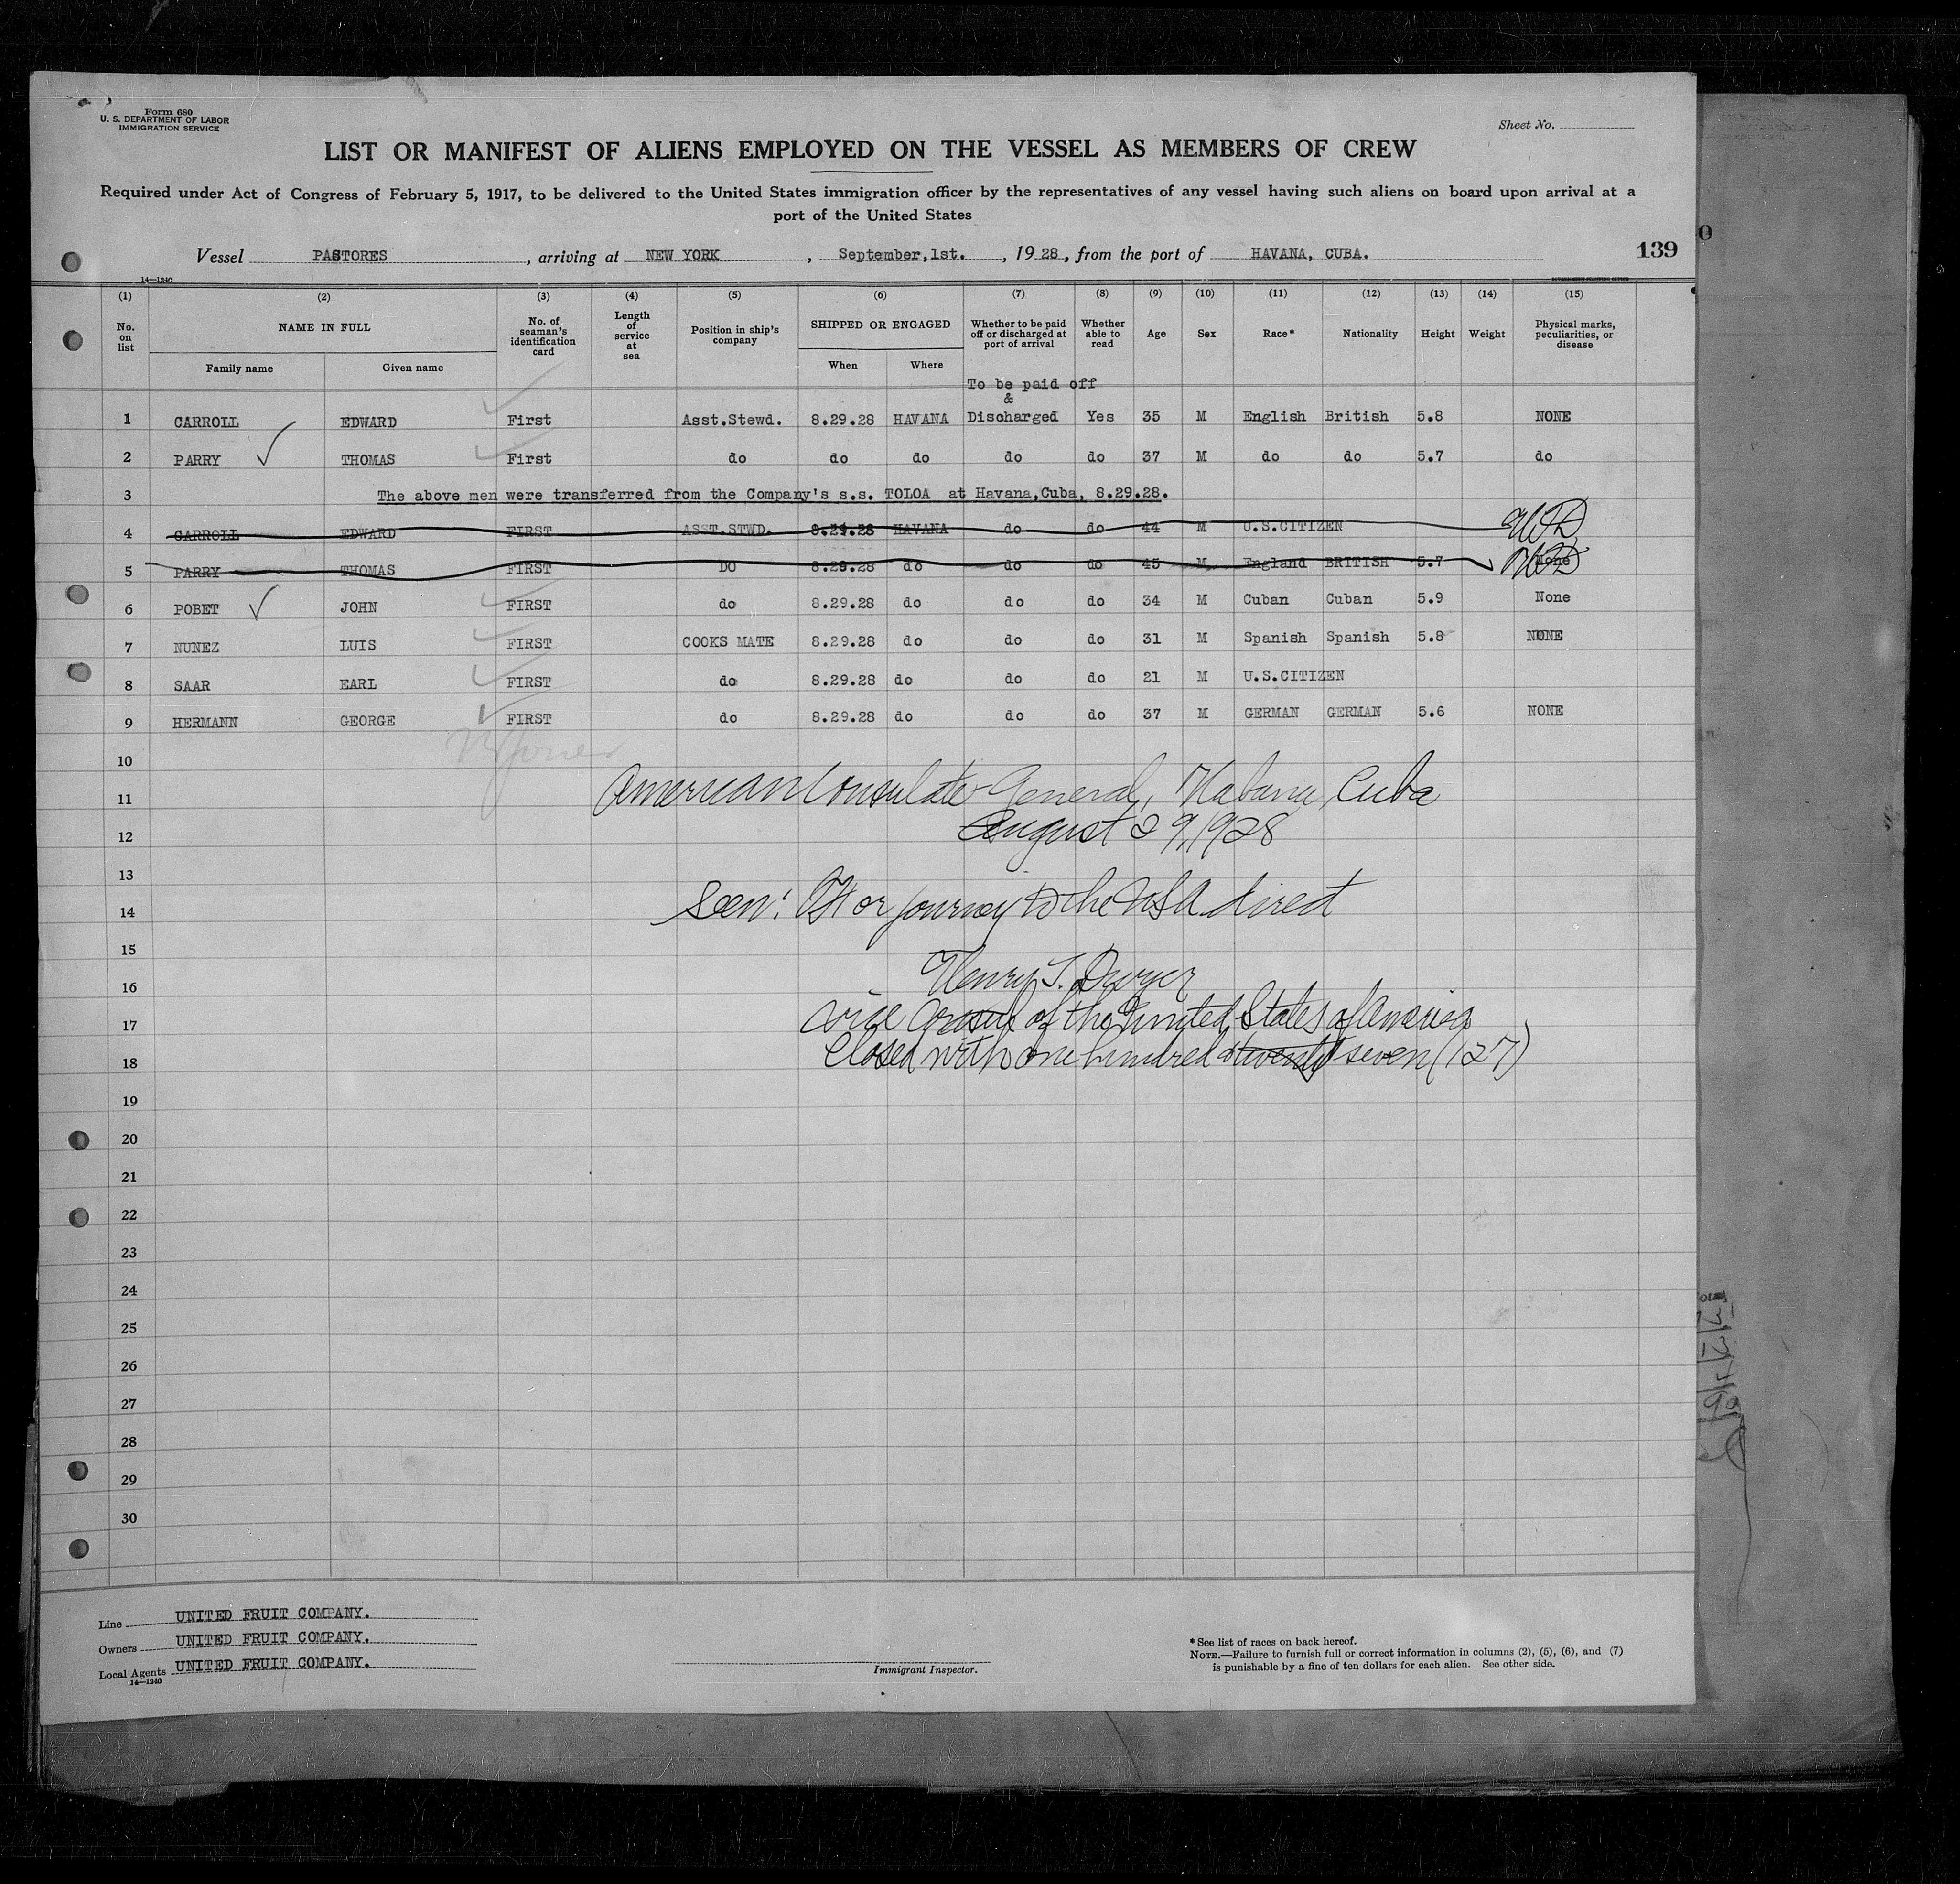 Form 680
U. S. DEPARTMENT OF LABOR
IMMIGRATION SERVICE
Sheet No.
LIST OR MANIFEST OF ALIENS EMPLOYED ON THE VESSEL AS MEMBERS OF CREW
Required under Act of Congress of February 5, 1917, to be delivered to the United States immigration officer by the representatives of any vessel having such aliens on board upon arrival at a
port of the United States
Vessel PASTORES, arriving at NEW YORK, September,1st., 1928, from the port of HAVANA, CUBA. 139
14—1240
(1) (2) (3) (4) (5) (6) (7) (8) (9) (10) (11) (12) (13) (14) (15)
No. on list NAME IN FULL Family name Given name No. of seaman's identification card Length of service at sea Position in ship's company SHIPPED OR ENGAGED When Where Whether to be paid off or discharged at port of arrival Whether able to read Age Sex Race* Nationality Height Weight Physical marks, peculiarities, or disease
To be paid off
&
1 CARROLL EDWARD First Asst.Stewd. 8.29.28 HAVANA Discharged Yes 35 M English British 5.8 NONE
2 PARRY THOMAS First do do do do do 37 M do do 5.7 do
3 The above men were transferred from the Company's s.s. TOLOA at Havana,Cuba, 8.29.28.
4 CARROLL EDWARD FIRST ASST.STWD. 8.29.28 HAVANA do do 44 M U.S.CITIZEN
5 PARRY THOMAS FIRST DO 8.29.28 do do do 45 M England BRITISH 5.7 None
6 POBET JOHN FIRST do 8.29.28 do do do 34 M Cuban Cuban 5.9 None
7 NUNEZ LUIS FIRST COOKS MATE 8.29.28 do do do 31 M Spanish Spanish 5.8 NONE
8 SAAR EARL FIRST do 8.29.28 do do do 21 M U.S.CITIZEN
9 HERMANN GEORGE FIRST do 8.29.28 do do do 37 M GERMAN GERMAN 5.6 NONE
10
11 American Consulate General, Habana, Cuba
12 August 29, 1928
13
14 Seen: For journey to the USA direct
15
16 Henry T. Dwyer
17 Vice Consul of the United States of America
18 Closed with one hundred twenty seven (127)
19
20
21
22
23
24
25
26
27
28
29
30
Line UNITED FRUIT COMPANY.
Owners UNITED FRUIT COMPANY.
Local Agents UNITED FRUIT COMPANY.
14—1240
Immigrant Inspector.
* See list of races on back hereof.
NOTE.—Failure to furnish full or correct information in columns (2), (5), (6), and (7)
is punishable by a fine of ten dollars for each alien. See other side.